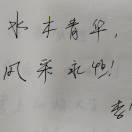 水木青华，
风采永恒！
李